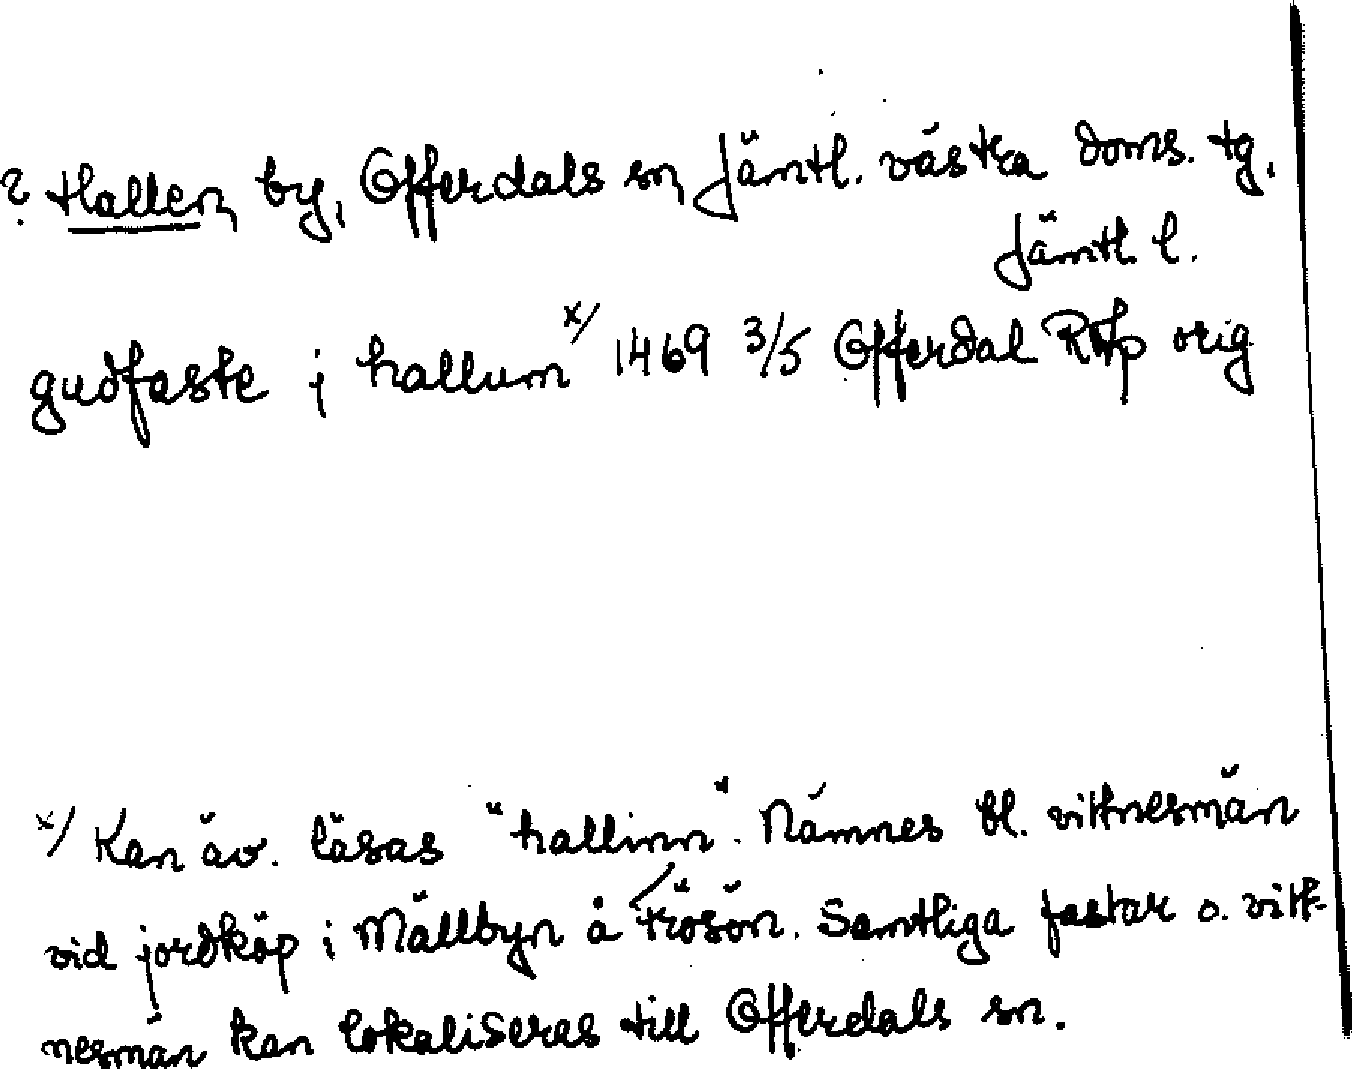 ? Hallen by, Offerdals sn Jämtl. västra doms. tg,
Jämtl. l.
gudfaste j hallum x/ 1469 3/5 Offerdal Rap orig
x/ Kan äv. läsas "hallinn". Nämnes bl. vittnesmän
vid jordköp i Mällbyn å Frösön. Samtliga fastar o. vitt-
nesmän kan lokaliseras till Offerdals sn.